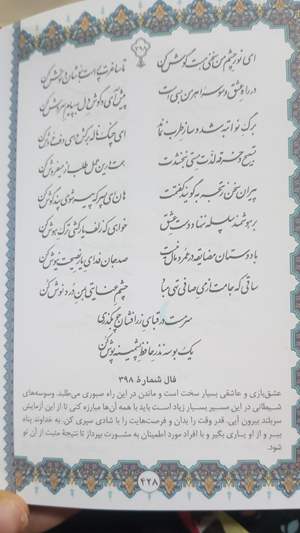 ۳۹۸
ای نور چشم من سخنی هست گوش کن
تا ساغرت پر است بنوشان و نوش کن
در راه عشق وسوسه اهرمن بسی است
پیش آی و گوش دل به پیام سروش کن
برگ نوا تبه شد و ساز طرب نماند
ای چنگ ناله برکش و ای دف خروش کن
تسبیح و خرقه لذت مستی نبخشدت
همت در این عمل طلب از می فروش کن
پیران سخن ز تجربه گویند گفتمت
هان ای پسر که پیر شوی پند گوش کن
بر هوشمند سلسله ننهاد دست عشق
خواهی که زلف یار کشی ترک هوش کن
با دوستان مضایقه در عمر و مال نیست
صد جان فدای یار نصیحت نیوش کن
ساقی که جامت از می صافی تهی مباد
چشم عنایتی به من درد نوش کن
سرمست در قبای زرافشان چو بگذری
یک بوسه نذر حافظ پشمینه پوش کن
فال شمارهٔ ۳۹۸
عشق‌بازی و عاشقی بسیار سخت است و ماندن در این راه صبوری می‌طلبد. وسوسه‌های
شیطانی در این مسیر بسیار زیاد است باید با همه آن‌ها مبارزه کنی تا از این آزمایش
سربلند بیرون آیی. قدر وقت را بدان و فرصت‌هایت را با شادی سپری کن. به خداوند پناه
ببر و از او یاری بگیر و با افراد مورد اطمینان به مشورت بپرداز تا نتیجهٔ مثبت از آن تو
شود.
۴۲۸